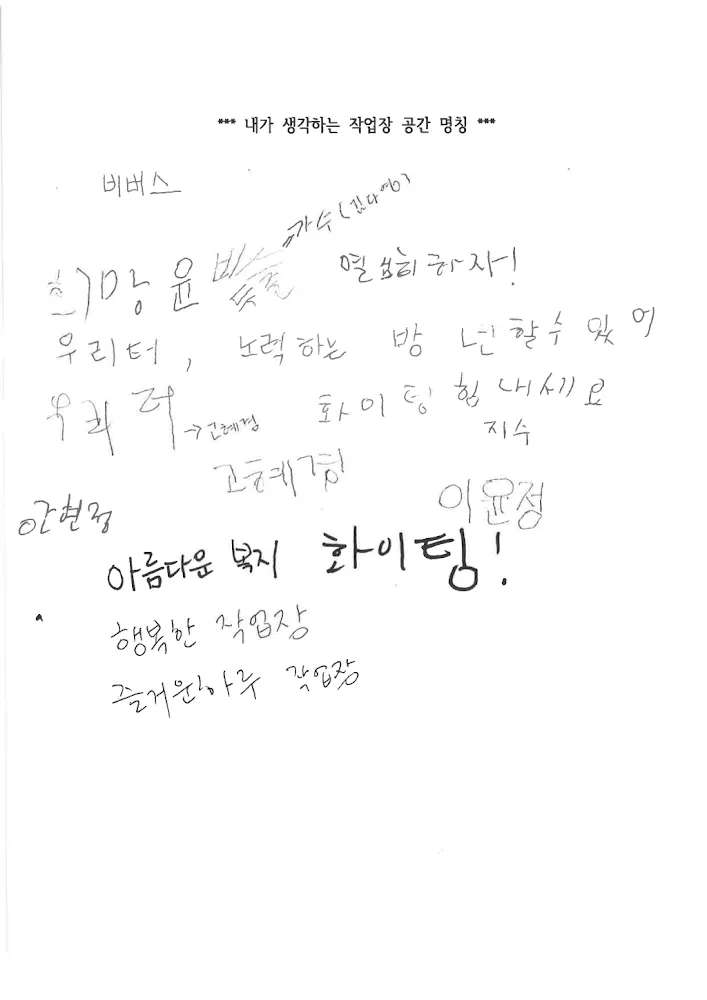 *** 내가 생각하는 작업장 공간 명칭 ***
비버스
가수(김다영)
희망 윤 열심히하자!
우리터, 노력하는 방 넌할수있어
우리터 →고혜경 화이팅 힘내세요
지수
고혜경
이윤정
안현정
아름다운 복지 화이팅!
행복한 작업장
즐거운하루 작업장